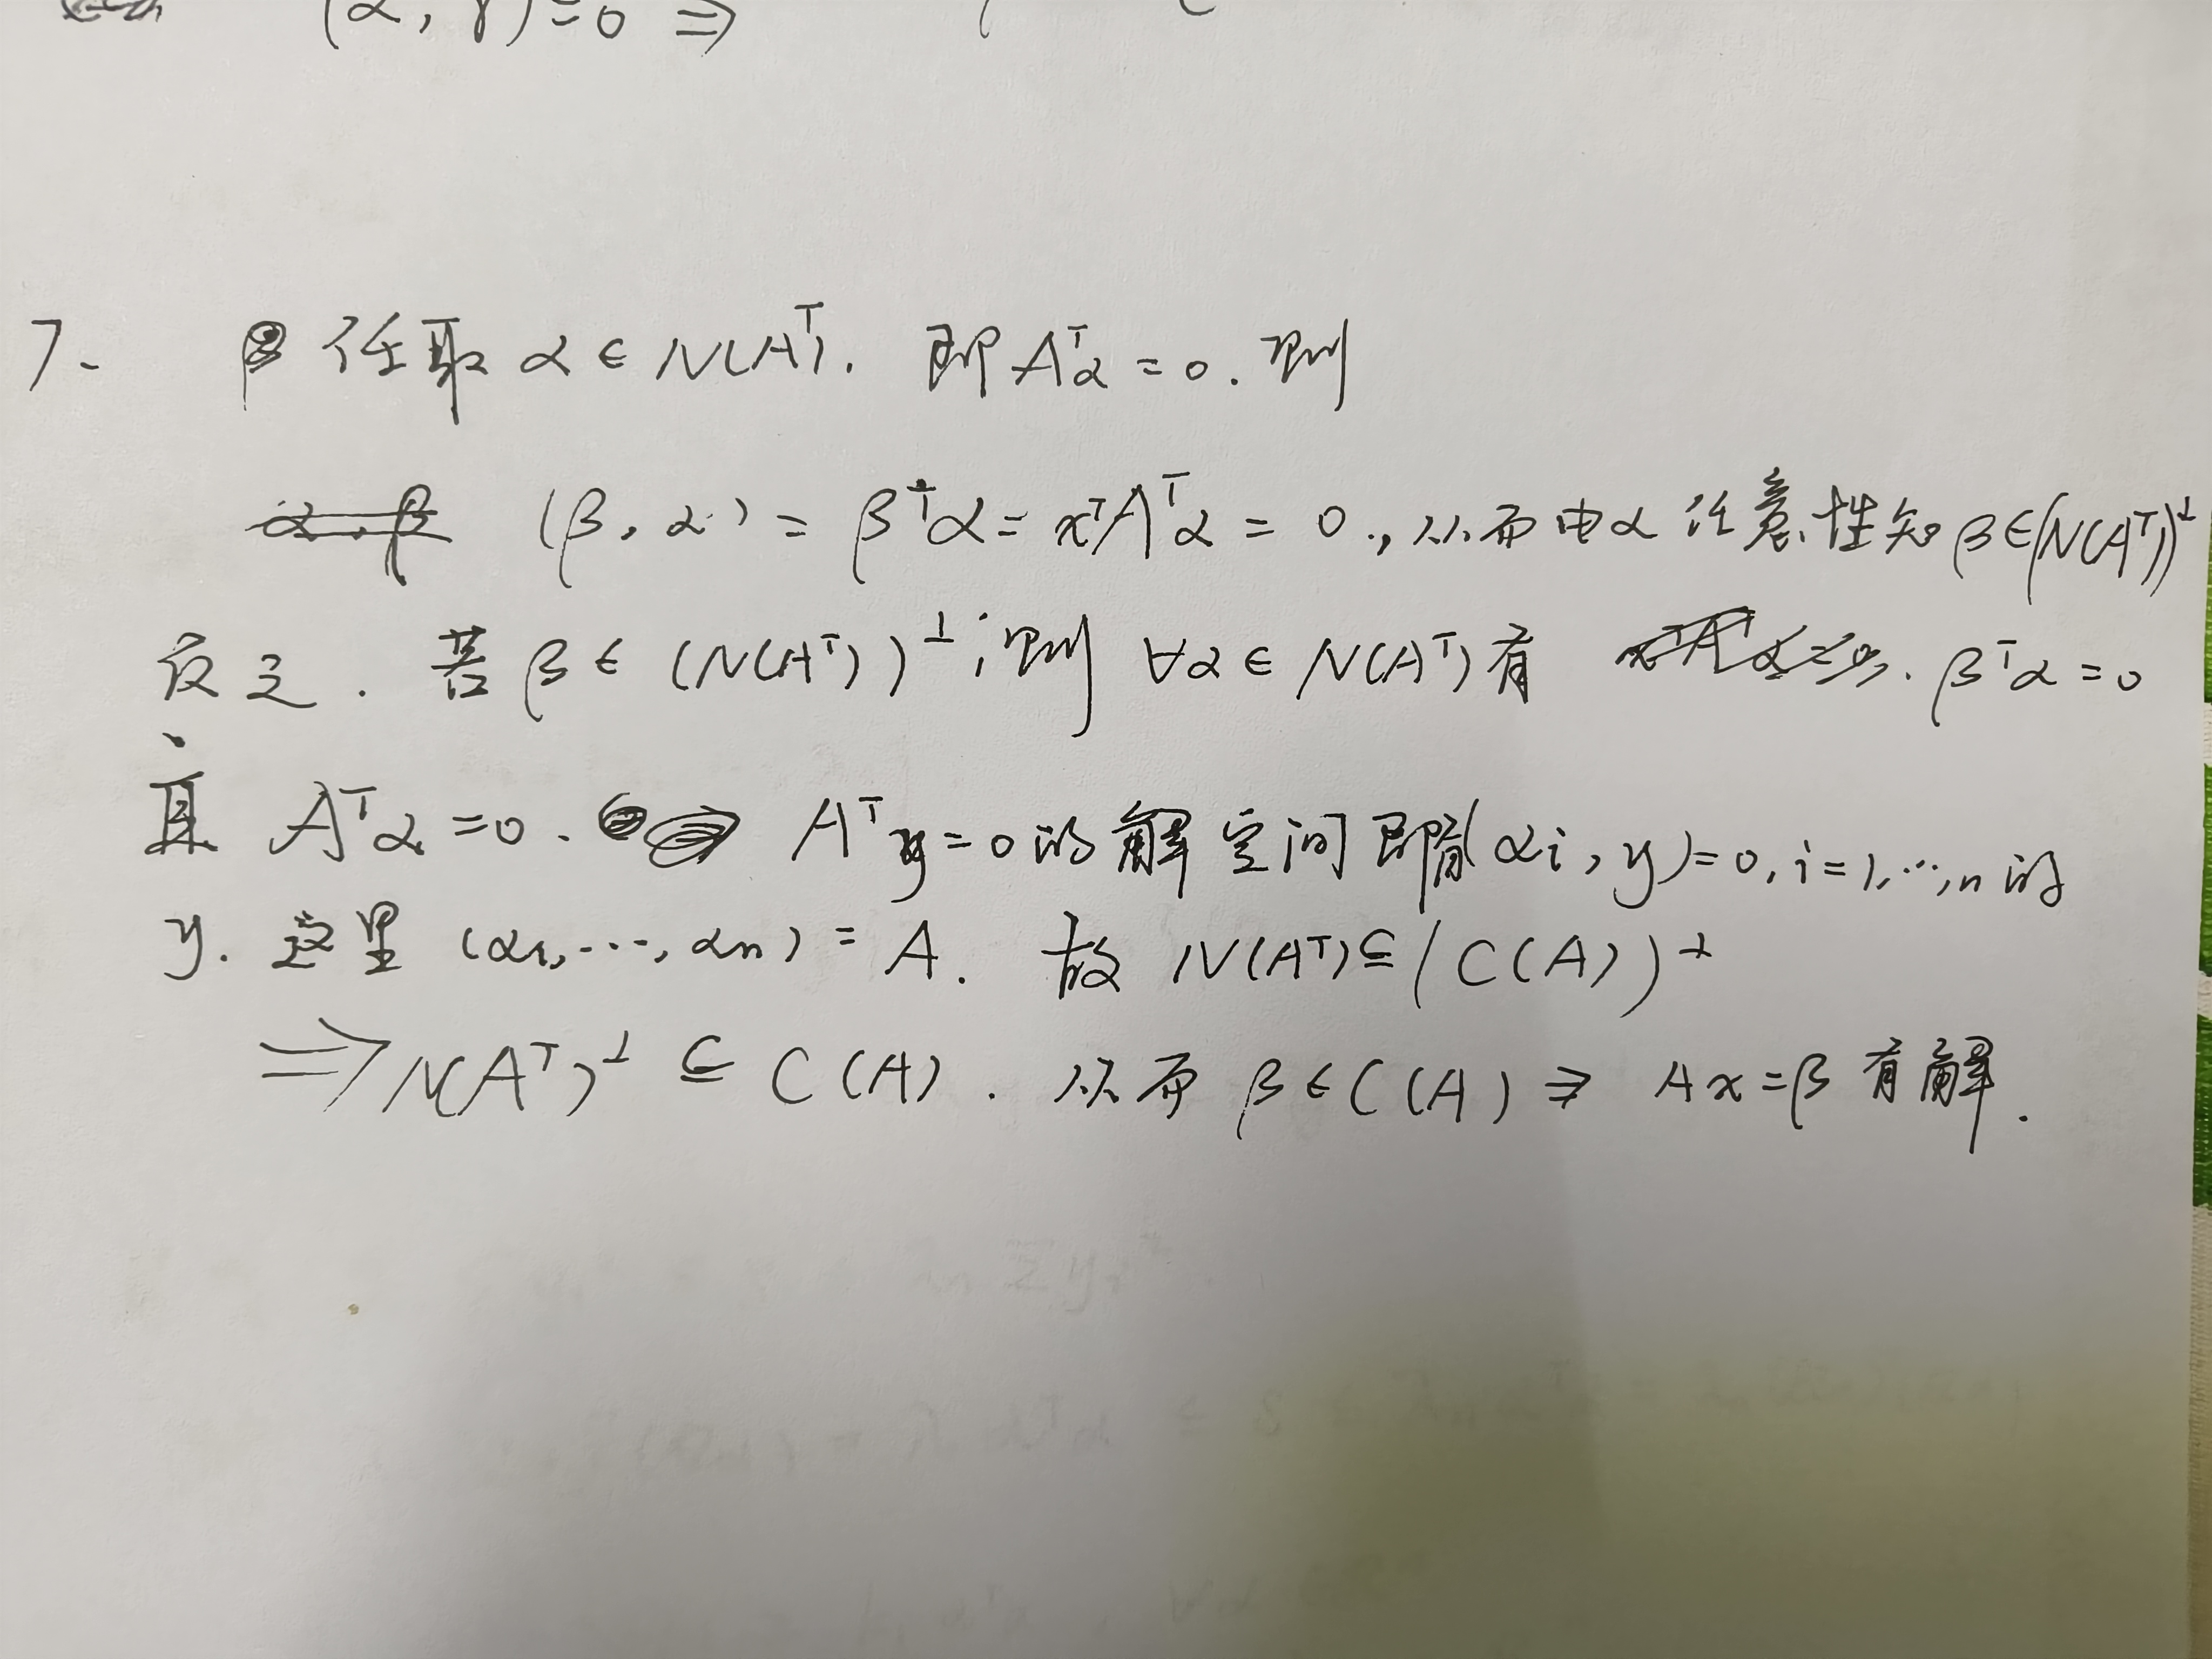 (α, γ)=0 ⇒
7. 任取 α ∈ N(Aᵀ). 即 Aᵀα = 0. 则
(β, α) = βᵀα = xᵀAᵀα = 0., 从而由α 任意性知 β∈(N(Aᵀ))^⊥
反之. 若 β ∈ (N(Aᵀ))^⊥, 则 ∀α ∈ N(Aᵀ) 有 βᵀα = 0
且 Aᵀα = 0. Aᵀy = 0 的解空间即(αi, y) = 0, i = 1, ..., n 的
y. 这里 (α₁, ..., αn) = A. 故 N(Aᵀ) ⊆ (C(A))^⊥
⇒ N(Aᵀ)^⊥ ⊆ C(A). 从而 β ∈ C(A) ⇒ Ax = β 有解.